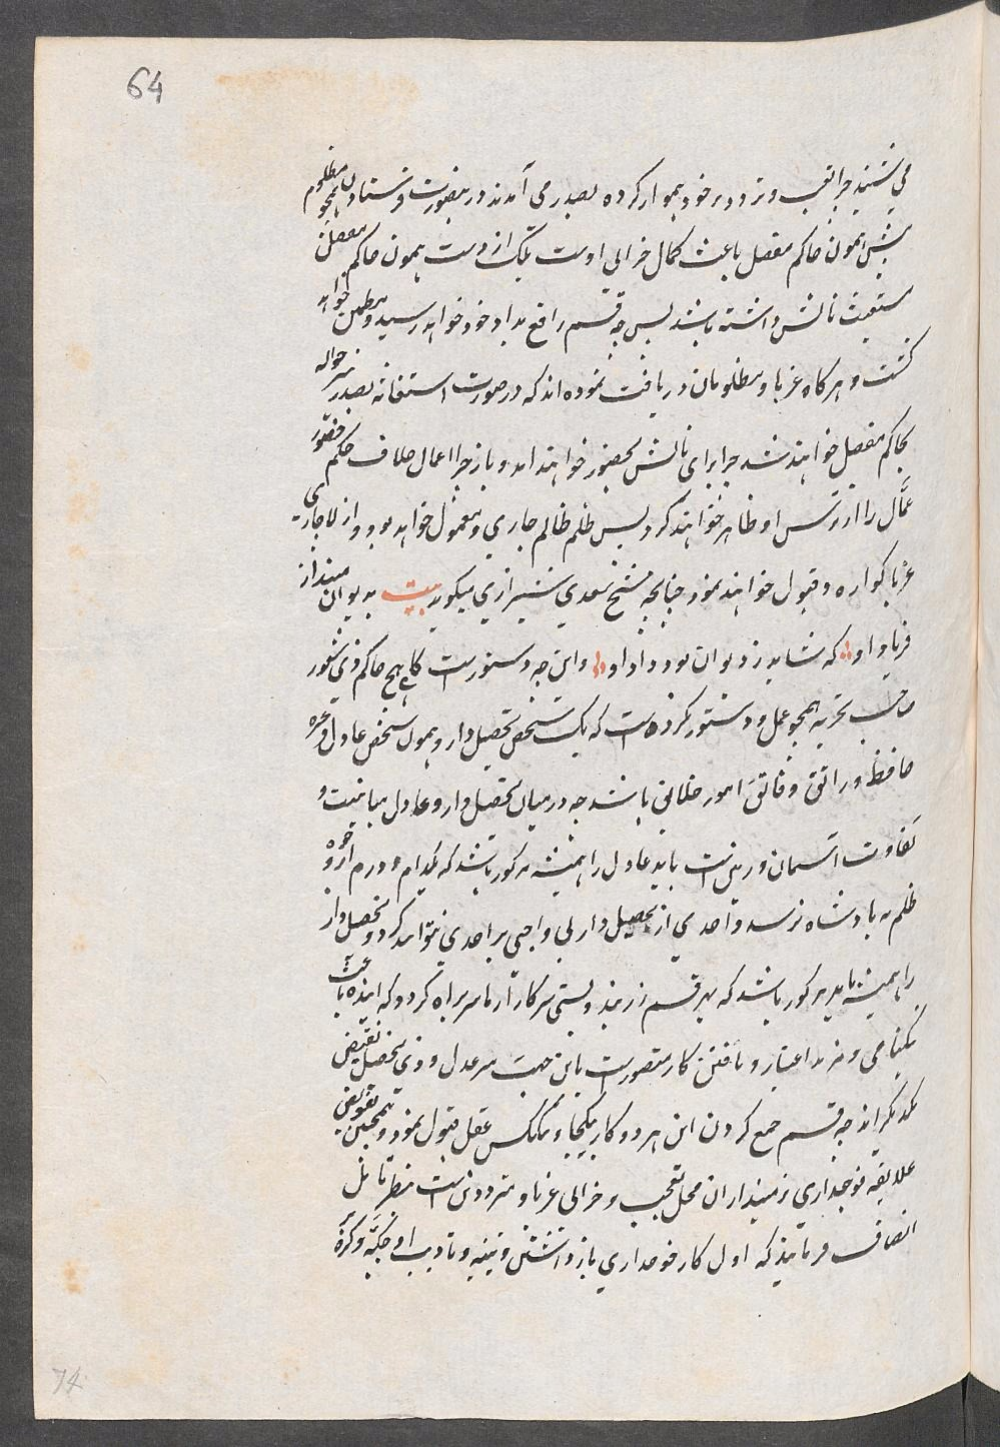 64
می شنید چرا تعب و تردد بر خود هموار کرده بصدر می آمدند درینصورت فرستادن همچو مظلوم
پیش همون حاکم مفصل باعث کمال خرابی اوست بلکه از دست همون حاکم مفصل
مستغیث نالش داشته باشد پس چه قسم رافع بداد خود خواهد رسید و مطمئن خواهد
گشت و هرگاه غربا و مظلومان دریافت نموده اند که در صورت استغاثه بصدر نیز حواله
بحاکم مفصل خواهند شد چرا برای نالش بحضور خواهند امد و باز چرا اعمال خلاف حکم حضور
عمّال را از ترس او ظاهر خواهند کرد پس ظلم ظالم جاری و معمول خواهد بود و از لاچاری
غربا گواره و قبول خواهند نمود چنانچه شیخ سعدی شیرازی میگوید بیت به دیوان مینداز
فریاد او که شاید ز دیوان بود داد او و این چه دستورست گاهی هیچ حاکم ذی شعور
صاحب تجربه همچو عمل و دستور نکرده است که یک شخص تحصیلدار و همون شخص عادل و غیره
حافظ و راتق و فاتق امور خلایق باشد چه درمیان تحصیلدار و عادل مباینت و
تفاوت آسمان و زمین است باید عادل را همیشه مذکور باشد که کدام
ظلم به بادشاه نرسد و احدی از تحصیلدار بی واجبی بر احدی نتواند کرد و تحصیلدار
را همیشه باید مذکور باشد که بهر قسم زر بندوبستی سرکار را سربراه کرد و که اینده باعث
نیکنامی و مزید اعتبار و یافتن کار متصورست باین جهت هر عدل و ذی تحصیل نقیض
یکدیگر اند چه قسم جمع کردن این هر دو کار یکجا و بیک کس عقل قبول نمود و همچنین تفویض
علایقه فوجداری زمینداران محل تعجب و خرابی غربا و مترددین است بنظر تامل
انصاف فرمایند که اول کار فوجداری باز داشتن و تنبیه و تادیب او
74